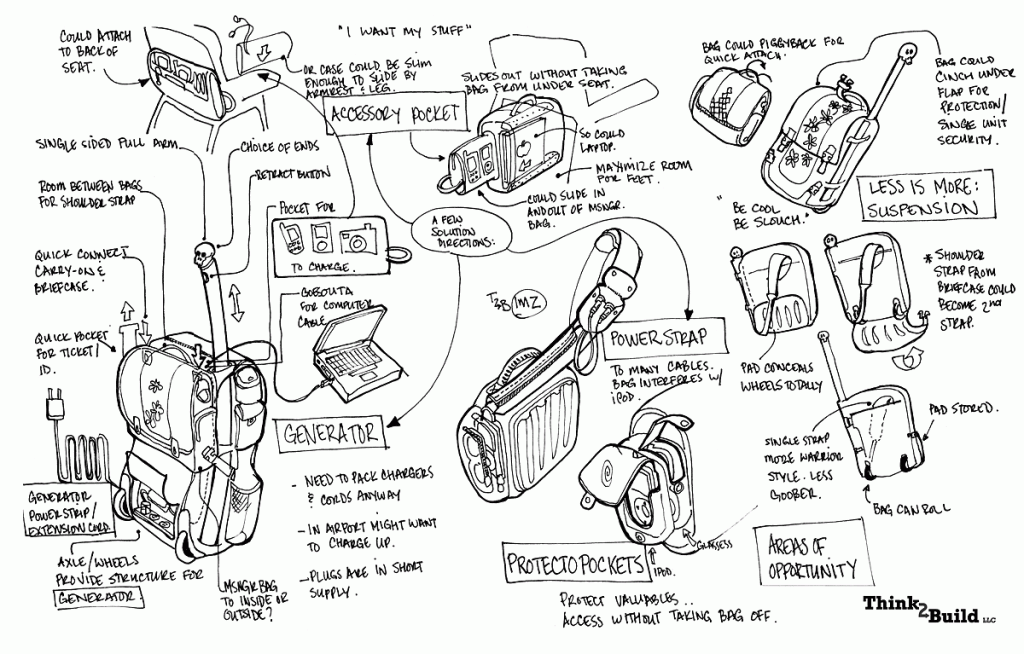 COULD ATTACH
TO BACK OF
SEAT.
"I WANT MY STUFF"
OR CASE COULD BE SLIM
ENOUGH TO SLIDE BY
ARMREST & LEG.
ACCESSORY POCKET
SLIDES OUT WITHOUT TAKING
BAG FROM UNDER SEAT.
SO COULD
LAPTOP.
MAXIMIZE ROOM
FOR FEET.
COULD SLIDE IN
AND OUT OF MSNGR.
BAG.
BAG COULD PIGGYBACK FOR
QUICK ATTACH.
BAG COULD
CINCH UNDER
FLAP FOR
PROTECTION/
SINGLE UNIT
SECURITY.
LESS IS MORE:
SUSPENSION
SINGLE SIDED PULL ARM
CHOICE OF ENDS
RETRACT BUTTON
ROOM BETWEEN BAGS
FOR SHOULDER STRAP
POCKET FOR
TO CHARGE.
A FEW
SOLUTION
DIRECTIONS:
"BE COOL
BE SLOUCH."
QUICK CONNECT
CARRY-ON &
BRIEFCASE.
GOES OUT A
FOR COMPUTER
CABLE
* SHOULDER
STRAP FROM
BRIEFCASE COULD
BECOME 2nd
STRAP.
QUICK POCKET
FOR TICKET/
ID.
1MZ
POWER STRAP
TO MANY CABLES.
BAG INTERFERES W/
iPOD.
PAD CONCEALS
WHEELS TOTALLY
GENERATOR
- NEED TO PACK CHARGERS
& CORDS ANYWAY
- IN AIRPORT MIGHT WANT
TO CHARGE UP.
- PLUGS ARE IN SHORT
SUPPLY.
SINGLE STRAP
MORE WARRIOR
STYLE. LESS
GOOBER.
PAD STOR'D.
BAG CAN ROLL
GENERATOR
POWER STRIP/
EXTENSION CORD
AXLE/WHEELS
PROVIDE STRUCTURE FOR
GENERATOR
MSNGR BAG
TO INSIDE OR
OUTSIDE?
GLASSESS
iPOD.
PROTECTO POCKETS
PROTECT VALUABLES..
ACCESS WITHOUT TAKING BAG OFF.
AREAS OF
OPPORTUNITY
Think2Build LLC